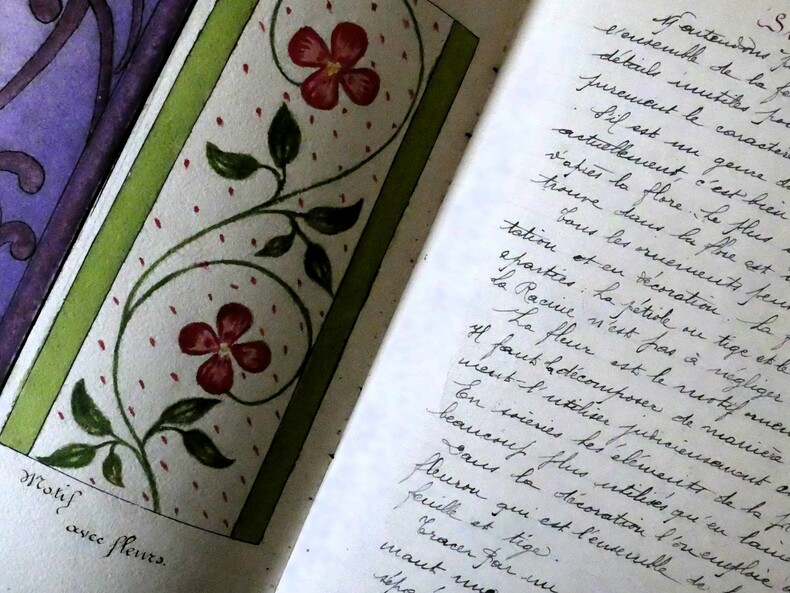 Motif
avec fleurs.
S
N'entendons p
l'ensemble de la fe
détails inutiles pou
purement le caractère
S'il est un genre de
actuellement c'est bien
d'après la flore. Le plus
trouve dans la flore est
Tous les ornements peuv
tation et en décoration. La
parties: la pétiole ou tige et le
la Racine n'est pas à négliger
La fleur est le motif ornem
Il faut la décomposer de manière
ment l'utiliser judicieusement
En soieries les éléments de la fl
beaucoup plus utilisés qu'en laine
Dans la décoration l'on emploie
fleuron qui est l'ensemble de
feuille et tige.
Tracer par un
mant